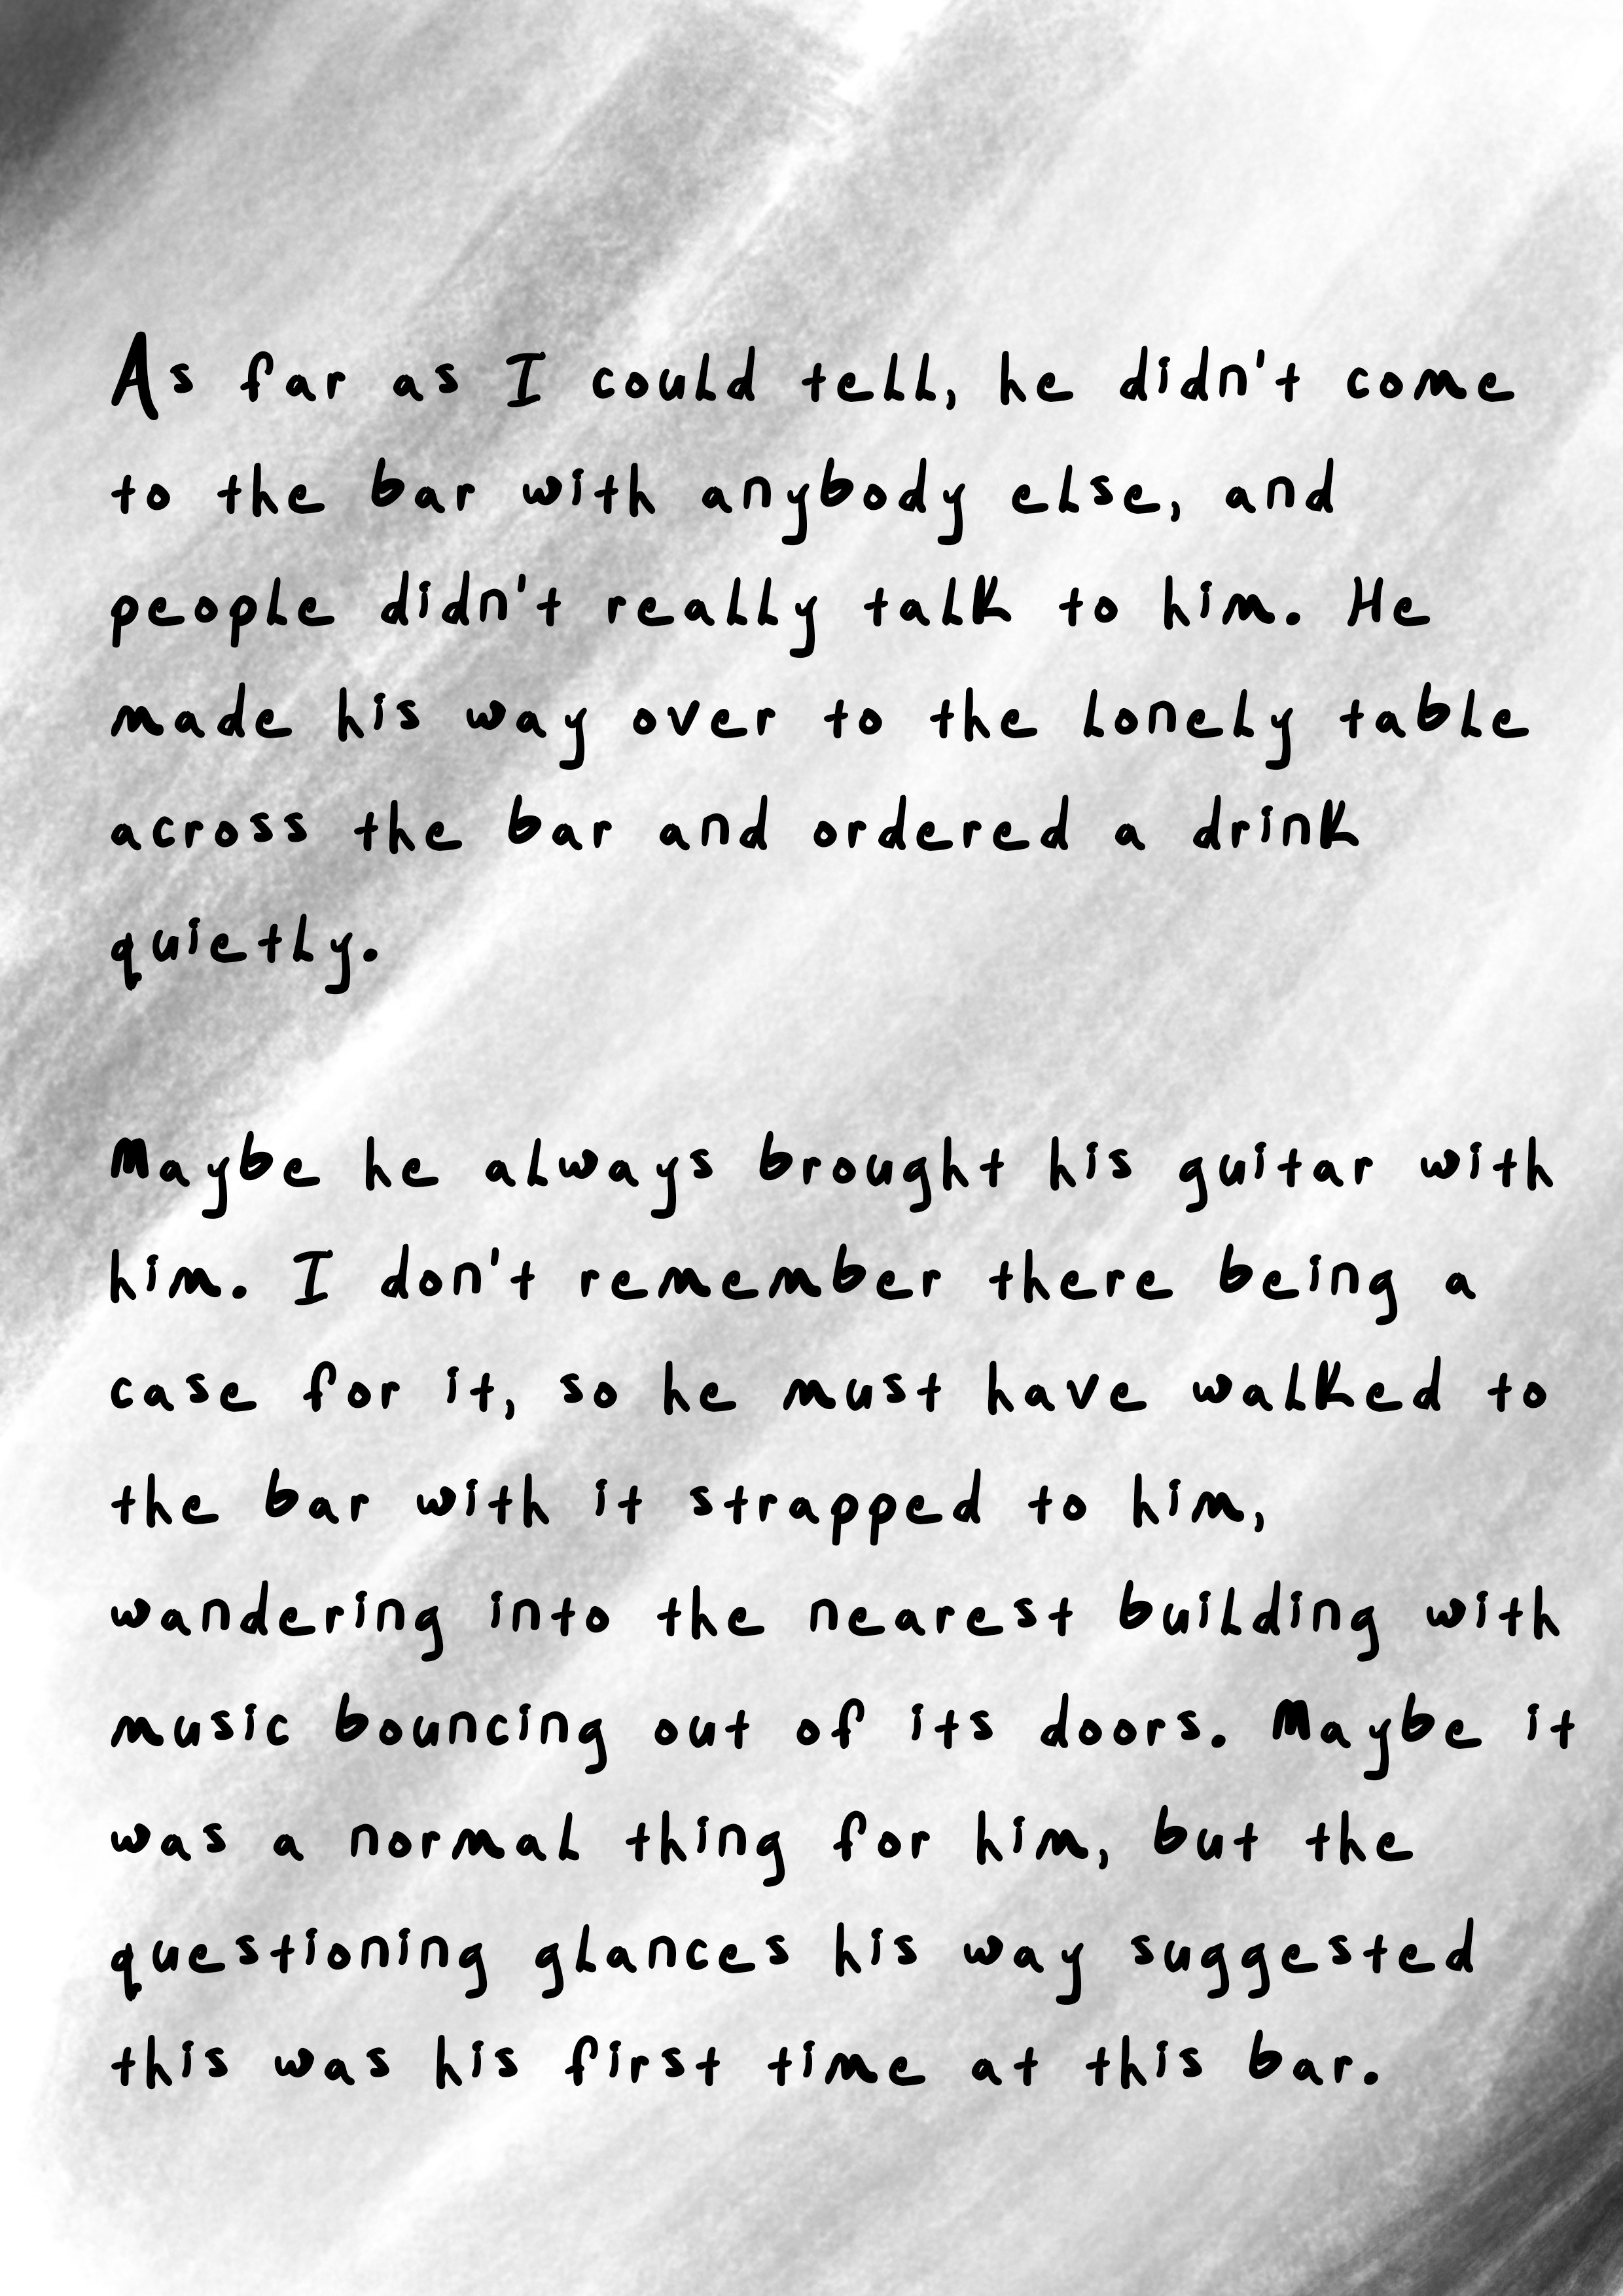 As far as I could tell, he didn't come
to the bar with anybody else, and
people didn't really talk to him. He
made his way over to the lonely table
across the bar and ordered a drink
quietly.
Maybe he always brought his guitar with
him. I don't remember there being a
case for it, so he must have walked to
the bar with it strapped to him,
wandering into the nearest building with
music bouncing out of its doors. Maybe it
was a normal thing for him, but the
questioning glances his way suggested
this was his first time at this bar.